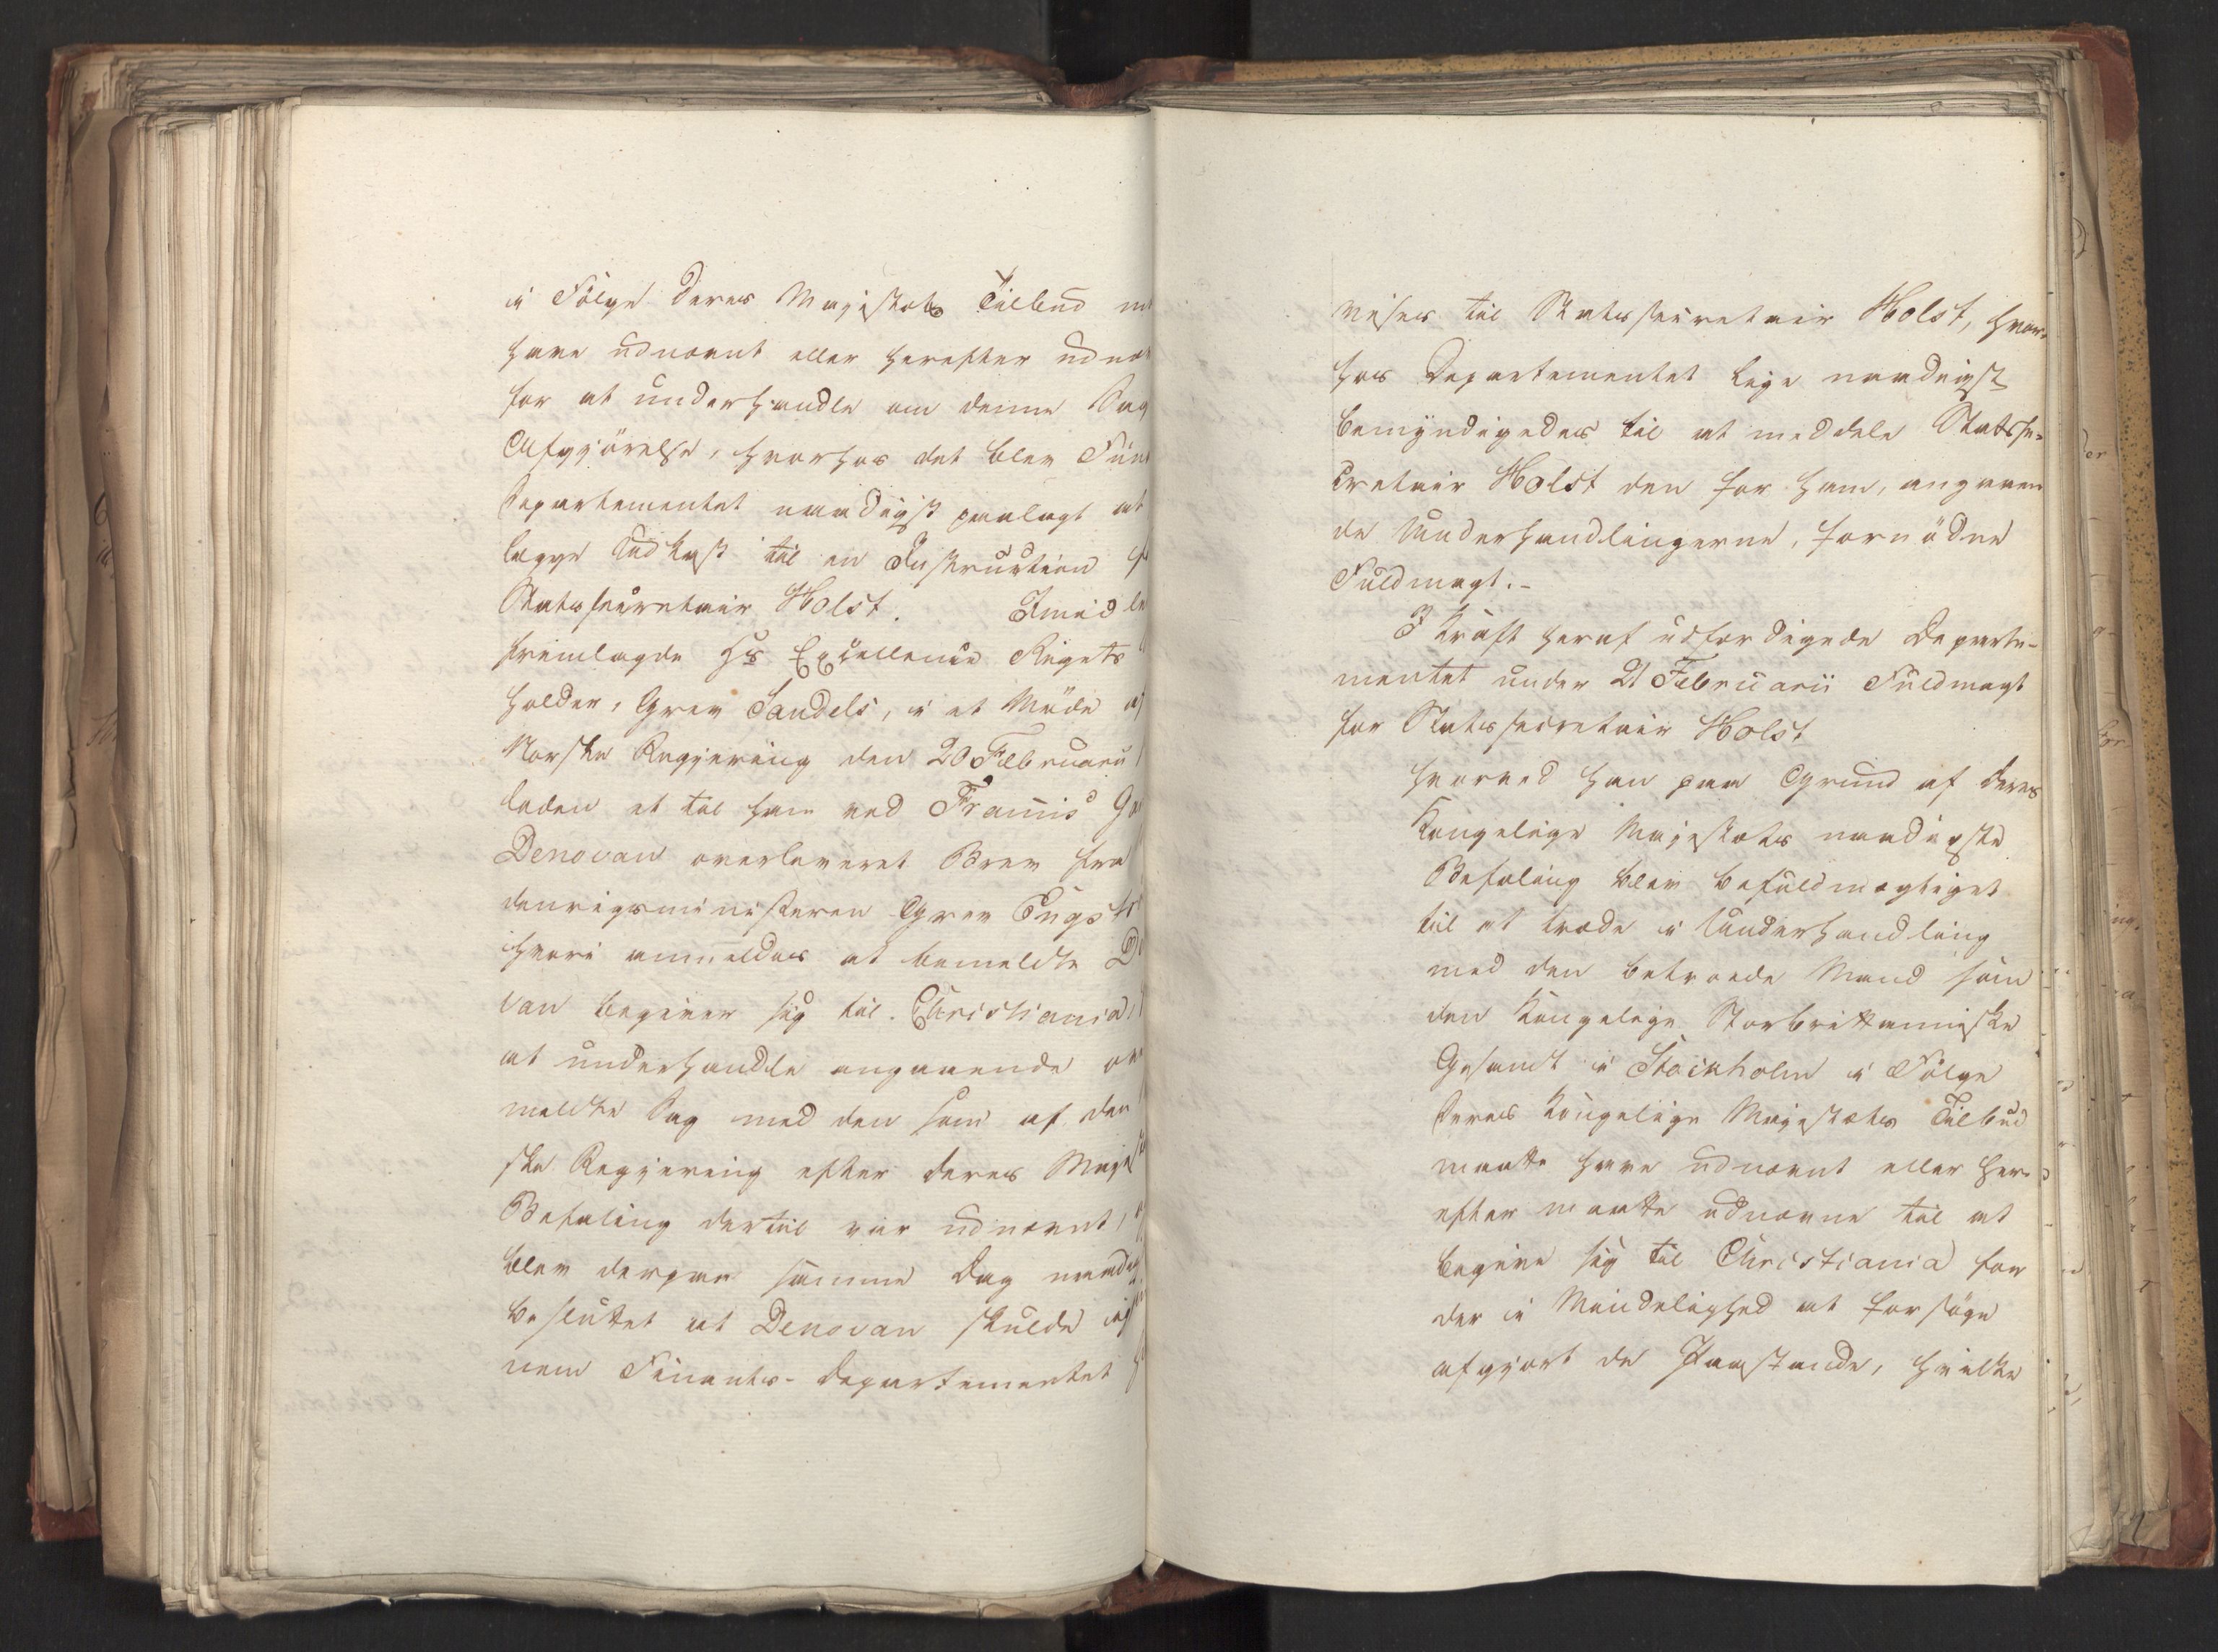 i Følge Deres Majestæts Tilbud
have udnævnt eller herefter udnæ
for at underhandle om denne Sag
Afgjörelse, hvorhos det blev Fin
Departementet naadigst paalagt at
lægge Udkast til en Instruction f
Statssecretair Holst. Imidle
fremlagde Hs Excellence Rigets
holder, Grev Sandels, i et Møde af
Norske Regjering den 20 Februarii
leden et til ham ved Francis
Denovan overleveret Brev fra
denrigsministeren Grev Engstr
hvori anmeldes at bemeldte De
van begiver sig til Christiania,
at underhandle angaaende ov
meldte Sag med den som af den
ske Regjering efter Deres Majest
Befaling dertil var udnævnt,
blev derpaa samme Dag naadig
besluttet at Denovan skulde igj
nem Finants-Departementet h
vises til Statssecretair Holst, hvor-
hos Departementet lige naadigst
bemyndigedes til at meddele Statsse-
cretair Holst den for ham, angaaen
de Underhandlingerne, fornødne
Fuldmagt.-
I Kraft heraf udfærdigede Departe-
mentet under 21 Februarii Fuldmagt
for Statssecretair Holst
hvorved han paa Grund af Deres
Kongelige Majestæts naadigste
Befaling blev befuldmægtiget
til at træde i Underhandling
med den betroede Mand som
den Kongelige Storbrittanniske
Gesandt i Stockholm i Følge
Deres Kongelige Majestæts Tilbud
maatte have udnævnt eller her-
efter maatte udnævne til at
begive sig til Christiania for
der i Mindelighed at forsøge
afgjort de Paastande, hvilke